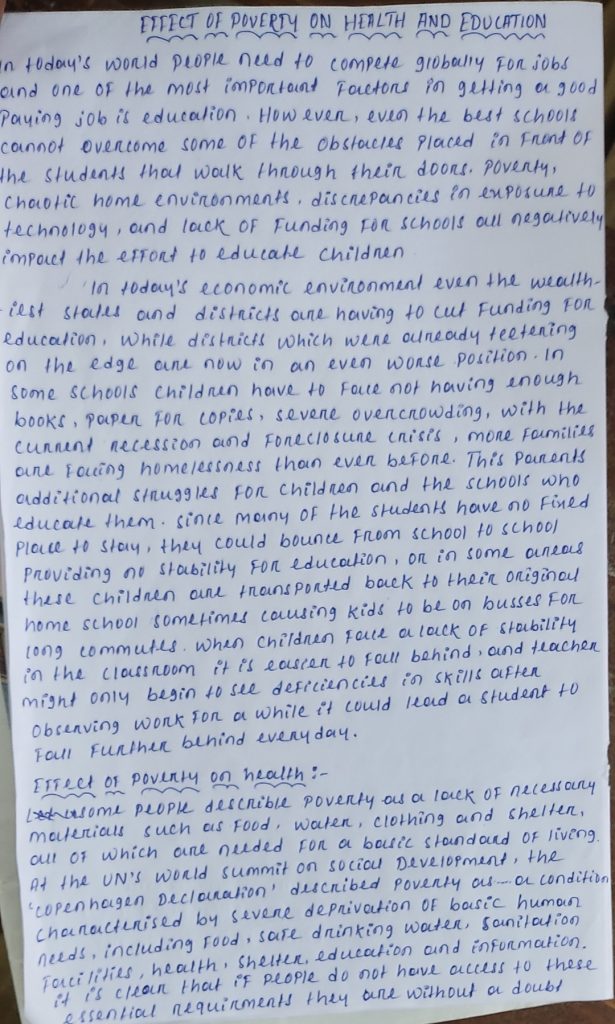 EFFECT OF POVERTY ON HEALTH AND EDUCATION
In today's world people need to compete globally for jobs
and one of the most important factors in getting a good
paying job is education. However, even the best schools
cannot overcome some of the obstacles placed in front of
the students that walk through their doors. Poverty,
chaotic home environments, discrepancies in exposure to
technology, and lack of funding for schools all negatively
impact the effort to educate children
'In today's economic environment even the wealth-
-iest states and districts are having to cut funding for
education, while districts which were already teetering
on the edge are now in an even worse position. In
some schools children have to face not having enough
books, paper for copies, severe overcrowding, with the
current recession and foreclosure crisis, more families
are facing homelessness than ever before. This parents
additional struggles for children and the schools who
educate them. Since many of the students have no fixed
place to stay, they could bounce from school to school
providing no stability for education, or in some areas
these children are transported back to their original
home school sometimes causing kids to be on busses for
long commutes. When children face a lack of stability
in the classroom it is easier to fall behind, and teacher
might only begin to see deficiencies in skills after
observing work for a while it could lead a student to
fall further behind everyday.
Effect of poverty on health :-
some people describle poverty as a lack of necessary
materials such as food, water, clothing and shelter,
all of which are needed for a basic standard of living.
At the UN's world summit on social Development, the
'copenhagen Declaration' described poverty as — a condition
characterised by severe deprivation of basic human
needs, including food, safe drinking water, sanitation
facilities, health, shelter, education and information.
it is clear that if people do not have access to these
essential requirments they are without a doubt